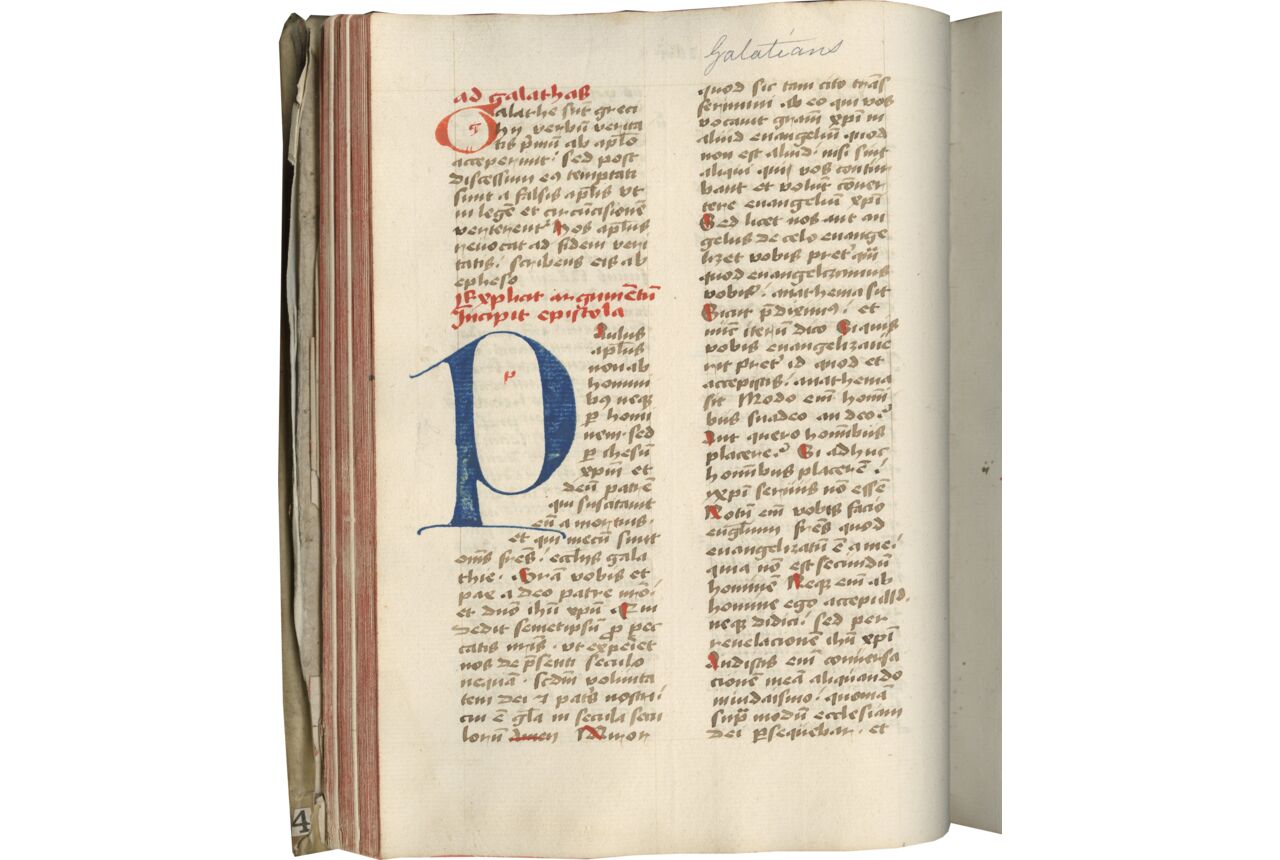 Galatians
ad galathas
Galathe sūt greci
hij verbū verita
tis p̄mū ab aplo
acceperunt · sed post
discessum eꝰ temptati
sunt a falsis aplis vt
in legē et circūcisionē
verterent᷑ hos aplus
reuocat ad fidem veri
tatis · scribens eis ab
epheso
Explicit argumētū
Incipit epistola
Paulus
aplus
non ab
homini
bꝰ neqꝫ
ꝑ homi
nem · sed
ꝑ ihesū
xpm̄ et
deū patrē
qui suscitauit
eū a mortuis ·
et qui mecū sunt
oms̄ frēs · eccliis gala
thie · Grā vobis et
pax a deo patre nrō ·
et dn̄o ihū xpō Qui
dedit semetipsū ꝓ pec
catis nr̄is · vt eriperet
nos de p̄senti seculo
nequā · scdm̄ volunta
tem dei ⁊ patˢ nostri ·
cui ē gl̄a in secula secu
lorū amen Miror
quod sic tam cito trās
ferimini ab eo qui vos
vocauit grām xpī in
aliud euangeliū quod
non est aliud · nisi sunt
aliqui qui vos contur
bant et volūt cōuer
tere euangeliū xpī
Sed licet nos aut an
gelus de celo euange
lizet vobis pret᷑ qᷓ
quod euangelizauimus
vobis · anathema sit
Sicut p̄diximꝰ · et
nūc iterū dico Si quis
vobis euangelizaue
rit pret᷑ id quod et
accepistis · anathema
sit Modo em̄ homi
bus suadeo an deo ·
Aut quero hominibus
placere · Si adhuc
hominibus placerē ·
xpī seruus nō essē
Notū em̄ vobis facio
euḡlium frēs quod
euangelizatū ē a me ·
quia nō est secundū
hominē Neqꝫ em̄ ab
homine ego accepi illd
neqꝫ didici · sed per
reuelacionē ihū xpī
Audistis em̄ conuersa
cionē meā aliquando
in iudaismo · quoniā
sup̄ modū ecclesiam
dei ꝑsequebar · et
4